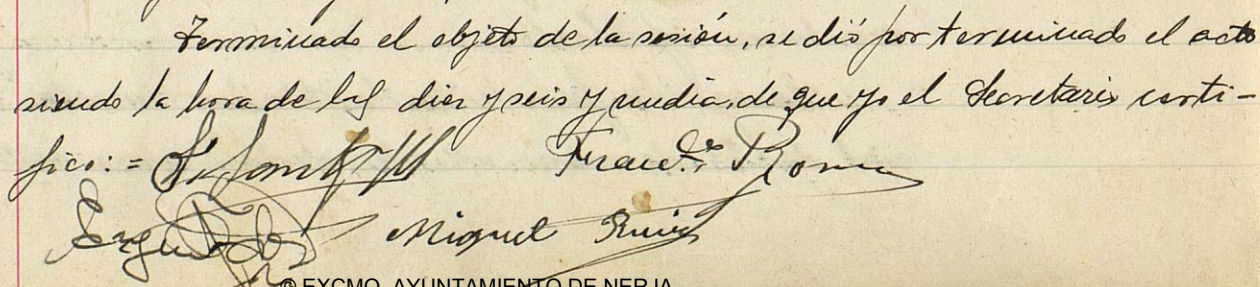 Terminado el objeto de la sesión, se dió por terminado el acto
siendo la hora de las diez y seis y media, de que yo el Secretario certi-
fico: = Franc.º Romo
Miguel Ruiz
© EXCMO. AYUNTAMIENTO DE NERJA